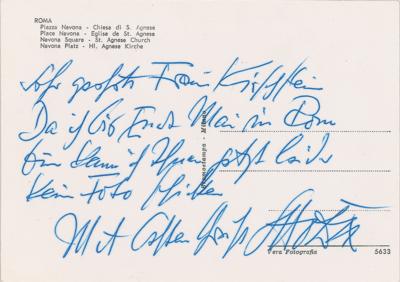 ROMA
Piazza Navona - Chiesa di S. Agnese
Place Navona - Eglise de St. Agnese
Navona Square - St. Agnese Church
Navona Platz - Hl. Agnese Kirche
Sehr geehrte Frau Kirchstein
Da ich bis Ende Mai in Rom
bin kann ich Ihnen jetzt leider
kein Foto schicken
Mit besten Gruß
Cromostampa - Milano
Vera Fotografia
5633